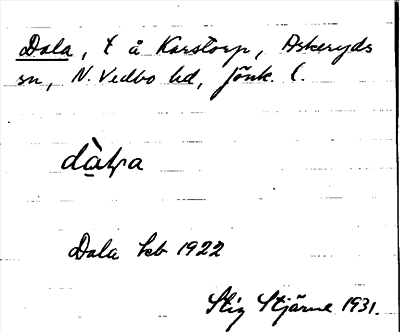 Dala, t å Karstorp, Askeryds
sn, N. Vedbo hd, Jönk. l.
Dala kb 1922
Stig Stjärne 1931.